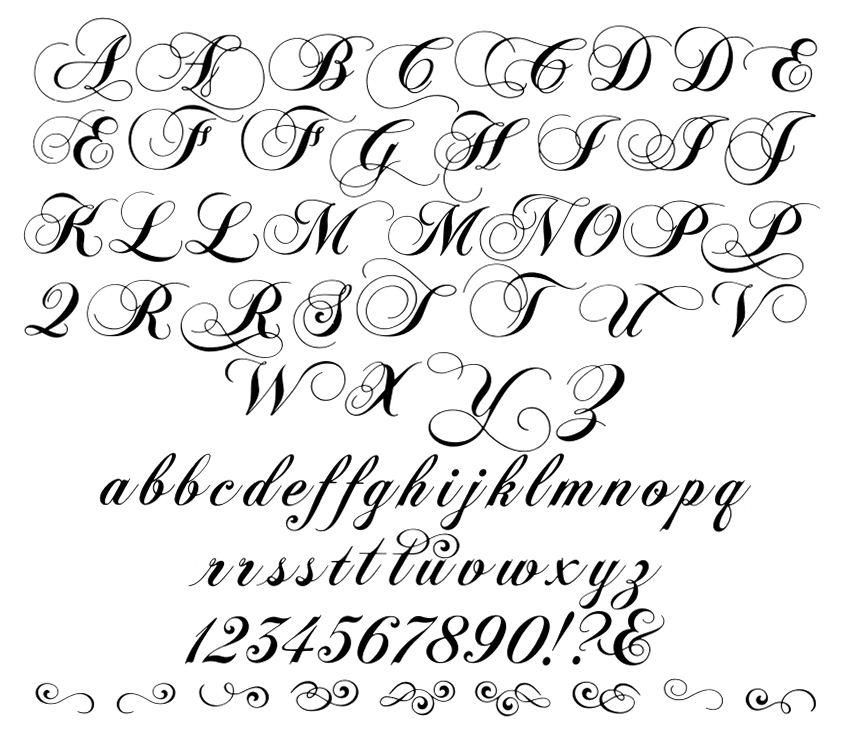 A A B C C D D E
E F F G H I I J
K L L M M N O P P
Q R R S T T U V
W X Y Z
abbcdeffghijklmnopq
rrsstttuvwxyz
1234567890!?&